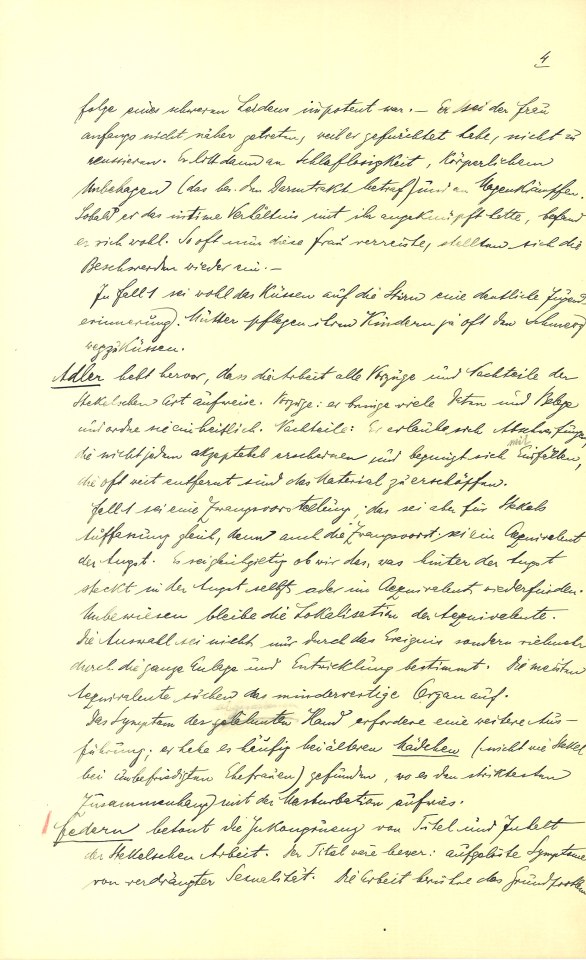 4
folge eines schweren Leidens impotent war. – Er sei der Frau
anfangs nicht näher getreten, weil er gefürchtet habe, nicht zu
reussieren. Er litt dann an Schlaflosigkeit, körperlichem
Unbehagen (das bes. den Darmtrakt betraf) und an Magenkrämpfen.
Sobald er das intime Verhältnis mit ihr angeknüpft hatte, befand
er sich wohl. So oft nun diese Frau verreiste, stellten sich die
Beschwerden wieder ein. –
In Fall 1 sei wohl das Küssen auf die Stirn eine deutliche Jugend
erinnerung. Mütter pflegen ihren Kindern ja oft den Schmerz
wegzuküssen.
Adler hebt hervor, dass die Arbeit alle Vorzüge und Nachteile der
Stekelschen Art aufweise. Vorzüge: er bringe viele Daten und Belege
und ordne sie einheitlich. Nachteile: Er erlaube sich
die nicht jedem akzeptabel erscheinen und begnügt sich mit Einfällen,
die oft weit entfernt sind das Material zu erschöpfen.
Fall 1 sei eine Zwangsvorstellung; das sei aber für Stekels
Auffassung gleich, denn auch die Zwangsvorst. sei ein Aequivalent
der Angst. Es sei gleichgiltig ob wir das, was hinter der Angst
steckt in der Angst selbst oder im Aequivalent wiederfinden.
Unbewiesen bleibe die Lokalisation der Aequivalente.
Die Auswahl sei nicht nur durch das Ereignis sondern vielmehr
durch die ganze Anlage und Entwicklung bestimmt. Die meisten
Aequivalente suchen das minderwertige Organ auf.
Das Symptom der gelähmten Hand erfordere eine weitere Aus-
führung; er habe es häufig bei älteren Mädchen (nicht wie Stekel
bei unbefriedigten Ehefrauen) gefunden, wo es den striktesten
Zusammenhang mit der Masturbation aufwies.
Federn betont die Inkongruenz von Titel und Inhalt
der Stekelschen Arbeit. Der Titel wäre besser: aufgelöste Symptome
von verdrängter Sexualität. Die Arbeit berühre das Grundproblem